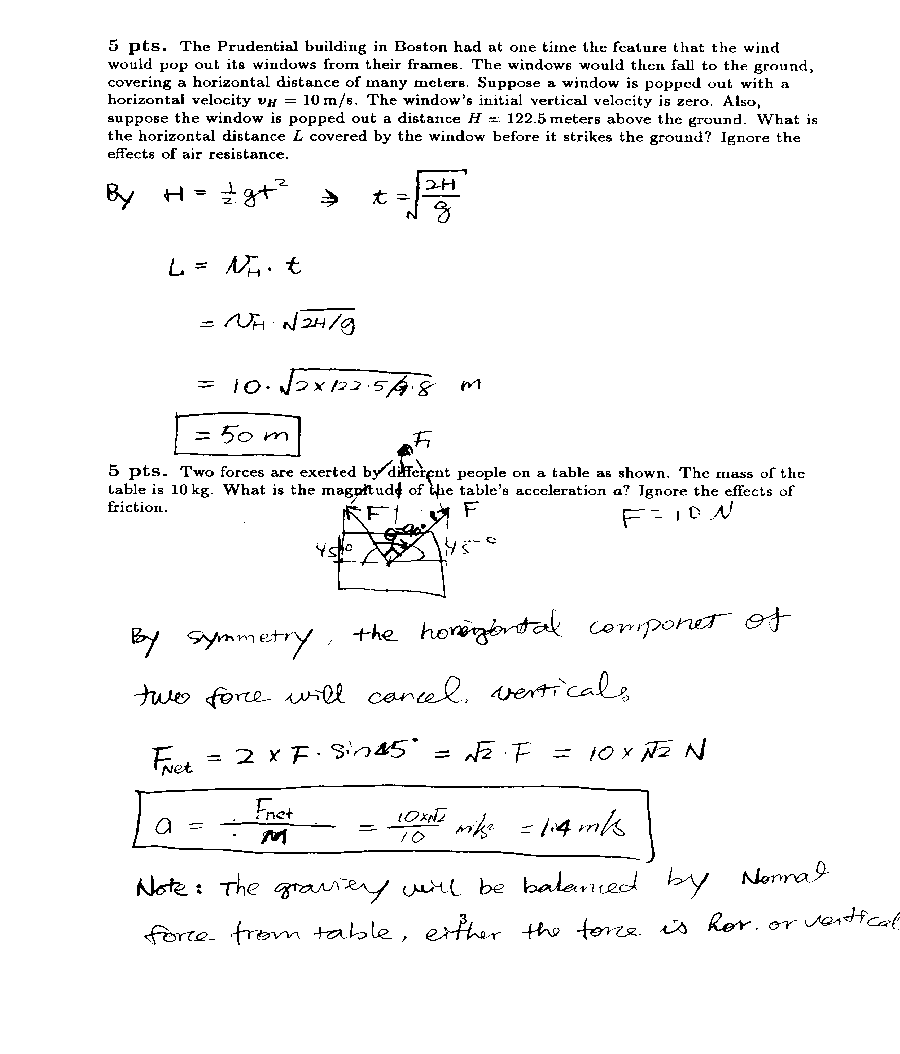 5 pts. The Prudential building in Boston had at one time the feature that the wind
would pop out its windows from their frames. The windows would then fall to the ground,
covering a horizontal distance of many meters. Suppose a window is popped out with a
horizontal velocity v_H = 10 m/s. The window's initial vertical velocity is zero. Also,
suppose the window is popped out a distance H = 122.5 meters above the ground. What is
the horizontal distance L covered by the window before it strikes the ground? Ignore the
effects of air resistance.
By H = ½gt² ⇒ t = √(2H/g)
L = v_H · t
= v_H · √2H/g
= 10 · √2×122.5/9.8 m
= 50 m
F
5 pts. Two forces are exerted by different people on a table as shown. The mass of the
table is 10 kg. What is the magnitude of the table's acceleration a? Ignore the effects of
friction.
F F F = 10 N
θ=90°
45° 45°
By symmetry, the horizontal componet of
two force will cancel, verticals
F_Net = 2 × F · Sin45° = √2 · F = 10 × √2 N
a = F_net / M = 10×√2 / 10 m/s² = 1.4 m/s
Note: The gravity will be balanced by Normal
force from table, either the force is hor. or vertical